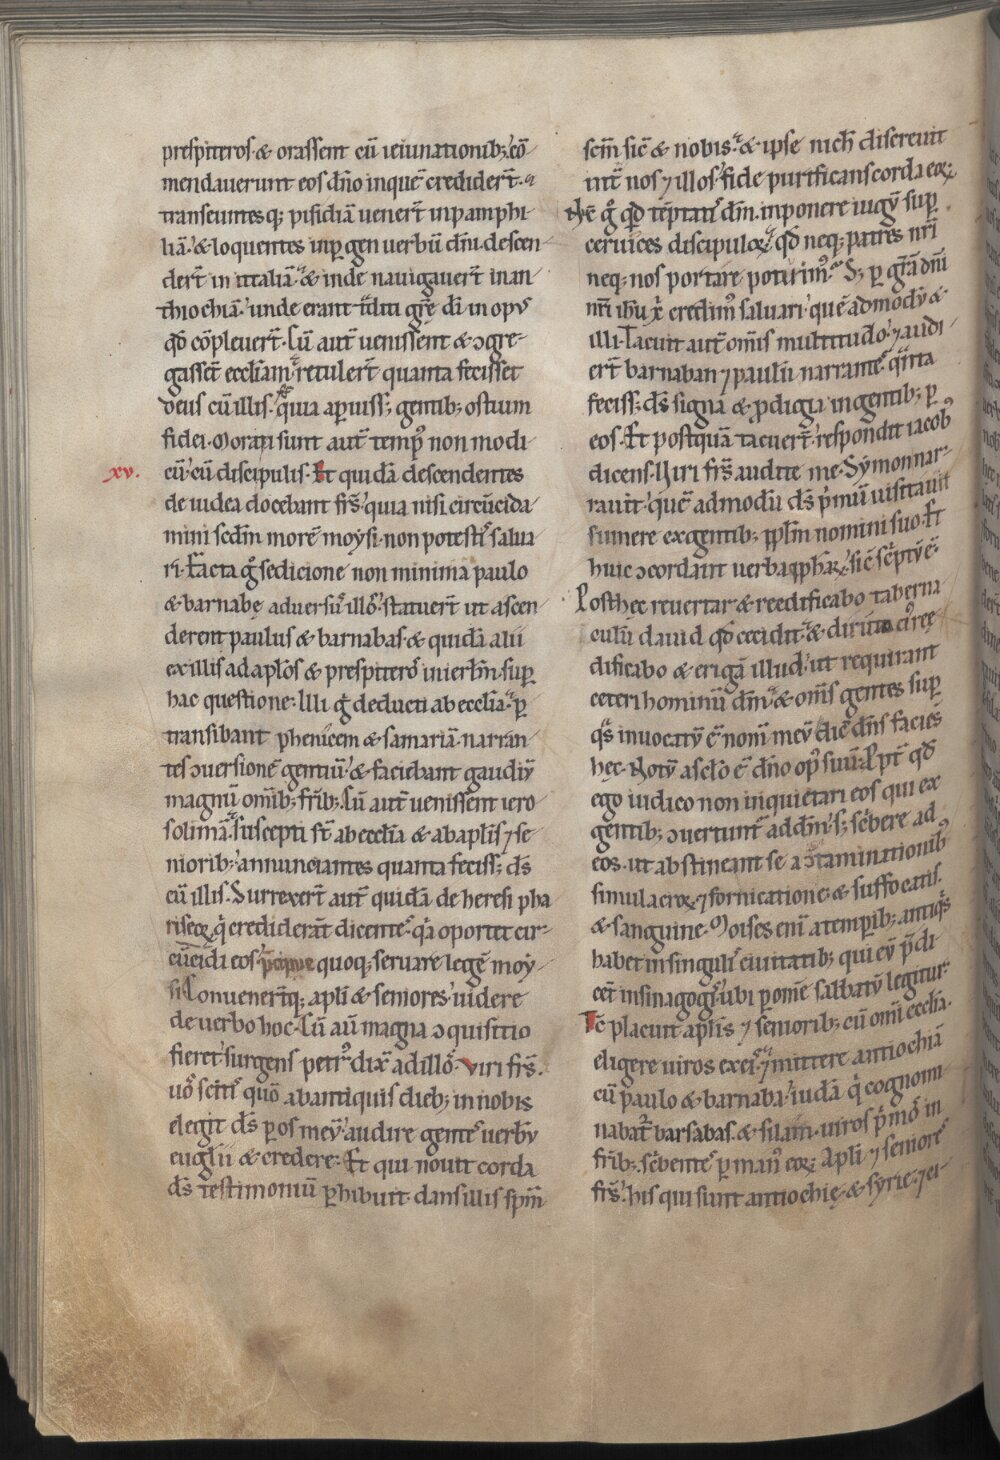 prespiteros· & orassent cū ieiunationib;' cō-
mendauerunt eos dño in quē crediderт̄·
transeuntesq; pisidiā uenerт̄ in pamphi-
liā·' & loquentes in pergen uerbū dñi· descen-
derт̄ in ittaliā· & inde nauigauerт̄ in an-
thiochiā·' unde erant tditi grę̄ dī in opꝰ
qđ cōpleuerт̄· Cū auт̄ uenissent & ↄgre-
gassēt eccliam·' retulerт̄ quanta fecisset
deus cū illis· quia aperuiss; gentib; ostium
fidei· Morati sunt auт̄ tempꝰ non modi-
xv.
cū·' cū discipulis· Et quidā descendentes
de iudea docebant frs̄·' quia nisi circūcida-
mini scdm̄ morē moysi· non potestis salua-
ri· Facta g̊ sedicione non minima paulo
& barnabę aduersus illos·' statuerт̄ ut ascen-
derent paulus & barnabas· & quidā alii
ex illis ad aplos̄ & prespiteros in ierlm̄· sup
hac questione· Illi g̊ deducti ab ecclia· ꝑ
transibant phenicem & samariā· narran-
tes ↄuersionē gentiū·' & faciebant gaudiū
magnū omīb; frīb; Cū auт̄ uenissent iero-
solimā·' suscepti sт̄ ab ecclia & ab aplis̄ ⁊ se-
niorib;' annunciantes quanta feciss; ds̄
cū illis· Surrexerт̄ auт̄ quidā de heresi pha
riseoꝝ q̇ crediderāt dicentes· q̇a oportet cir-
cūcidi eos· quoq; seruare legē moy-
si· Conuenerт̄q; apli̅ & seniores·' uidere
de uerbo hoc· Cū aū magna ↄquisitio
fieret·' surgens petrꝰ dix̄ ad illos· Viri frs̄·
uos scitis quō ab antiquis dieb; in nobis
elegit ds̄ ꝑ os meū·' audire gentes uerbū
euglii & credere· Et qui nouit corda
ds̄ testimoniū ꝑhibuit· dans illis spm̄
scm̄ sic̄ & nobis· & ipse nich̄ discreuit
int̄ nos ⁊ illos·' fide purificans corda eoꝝ
Nc̄ g̊ qđ tēptatis dm̄· inponere iugū sup
ceruices discipuloꝝ· qđ neq; patres nrī
neq; nos portare potuimꝰ· S; ꝑ grām dnī
nrī ihū xp̄ credimꝰ saluari·' quēadmodū &
illi· Tacuit auт̄ omīs multitudo·' ⁊ audi-
erт̄ barnaban ⁊ paulū narrantes q̇nta
feciss; ds̄ signa & ꝓdigia in gentib; ꝑ
eos· Et postquā tacuerт̄·' respondit iacobꝰ
dicens· Uiri frs̄ audite me· Symon nar-
rauit·' quēadmodū ds̄ p̄mū uisitauit
sumere ex gentib; ꝓplm̄ nomini suo· Et
huic ↄcordant uerba ꝓphaꝝ·' sic̄ sc̄ptū ē·
Posthec reuertar· & reedificabo taberna
culū dauid qđ cecidit· & diruta eiꝰ ree-
dificabo & erigā illud·' ut requirant
ceteri hominū dm̄·' & omīs gentes sup
qs̄ inuocatū ē nom̄ meū dic̄ dns̄ facies
hec· Notū a sclo ē dño opꝰ suū· Ppt̄ qđ
ego iudico non inquietari eos qui ex
gentib; ↄuertunт̄ ad dm̄·' s; sc̄bere ad
eos· ut abstineant se a ↄtaminationibꝰ
simulacroꝝ ⁊ fornicatione· & suffocatis·
& sanguine· Moises enī a temporib; antiq̇s
habet in singulis ciuitatib; qui eū p̄di
cet in sinagogis·' ubi ꝑ omē sabbatū legitur·
Tc̄ placuit aplis̄ ⁊ seniorib; cū omī ecclia·
eligere uiros ex eis· ⁊ mittere antiochiā
cū paulo & barnaba·' iudā q̇ cognomi-
nabat̄ barsabas· & silam· uiros p̄mos in
frīb;· sc̄bentes ꝑ manꝰ eoꝝ Apli̅ ⁊ seniores
frs̄·' his qui sunt antiochię· & syrie· ⁊ ci-